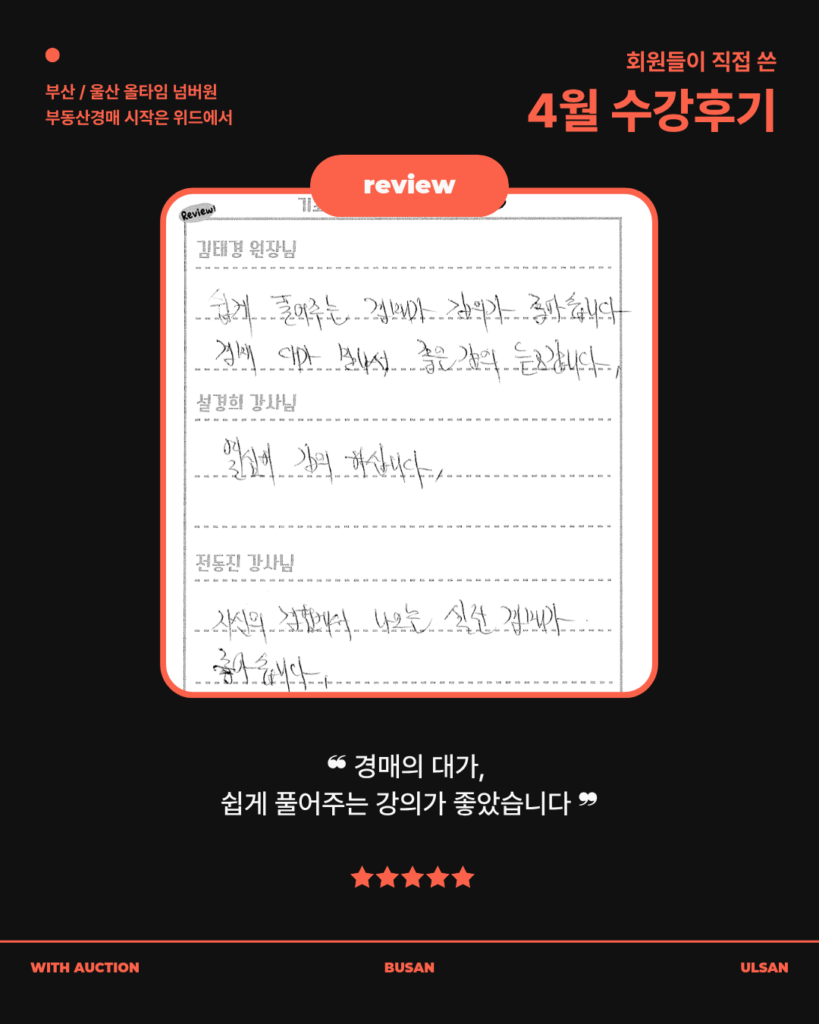 부산 / 울산 올타임 넘버원
부동산경매 시작은 위드에서
회원들이 직접 쓴
4월 수강후기
review
Review!
김태경 원장님
쉽게 풀어주는 경매가 강의가 좋아습니다
경매 대가 만나서 좋은 강의 듣고갑니다,
설경희 강사님
열심히 강의 하십니다,
전동진 강사님
자신의 경험에서 나오는 실전 경매가
좋아습니다,
❝ 경매의 대가,
쉽게 풀어주는 강의가 좋았습니다 ❞
WITH AUCTION BUSAN ULSAN